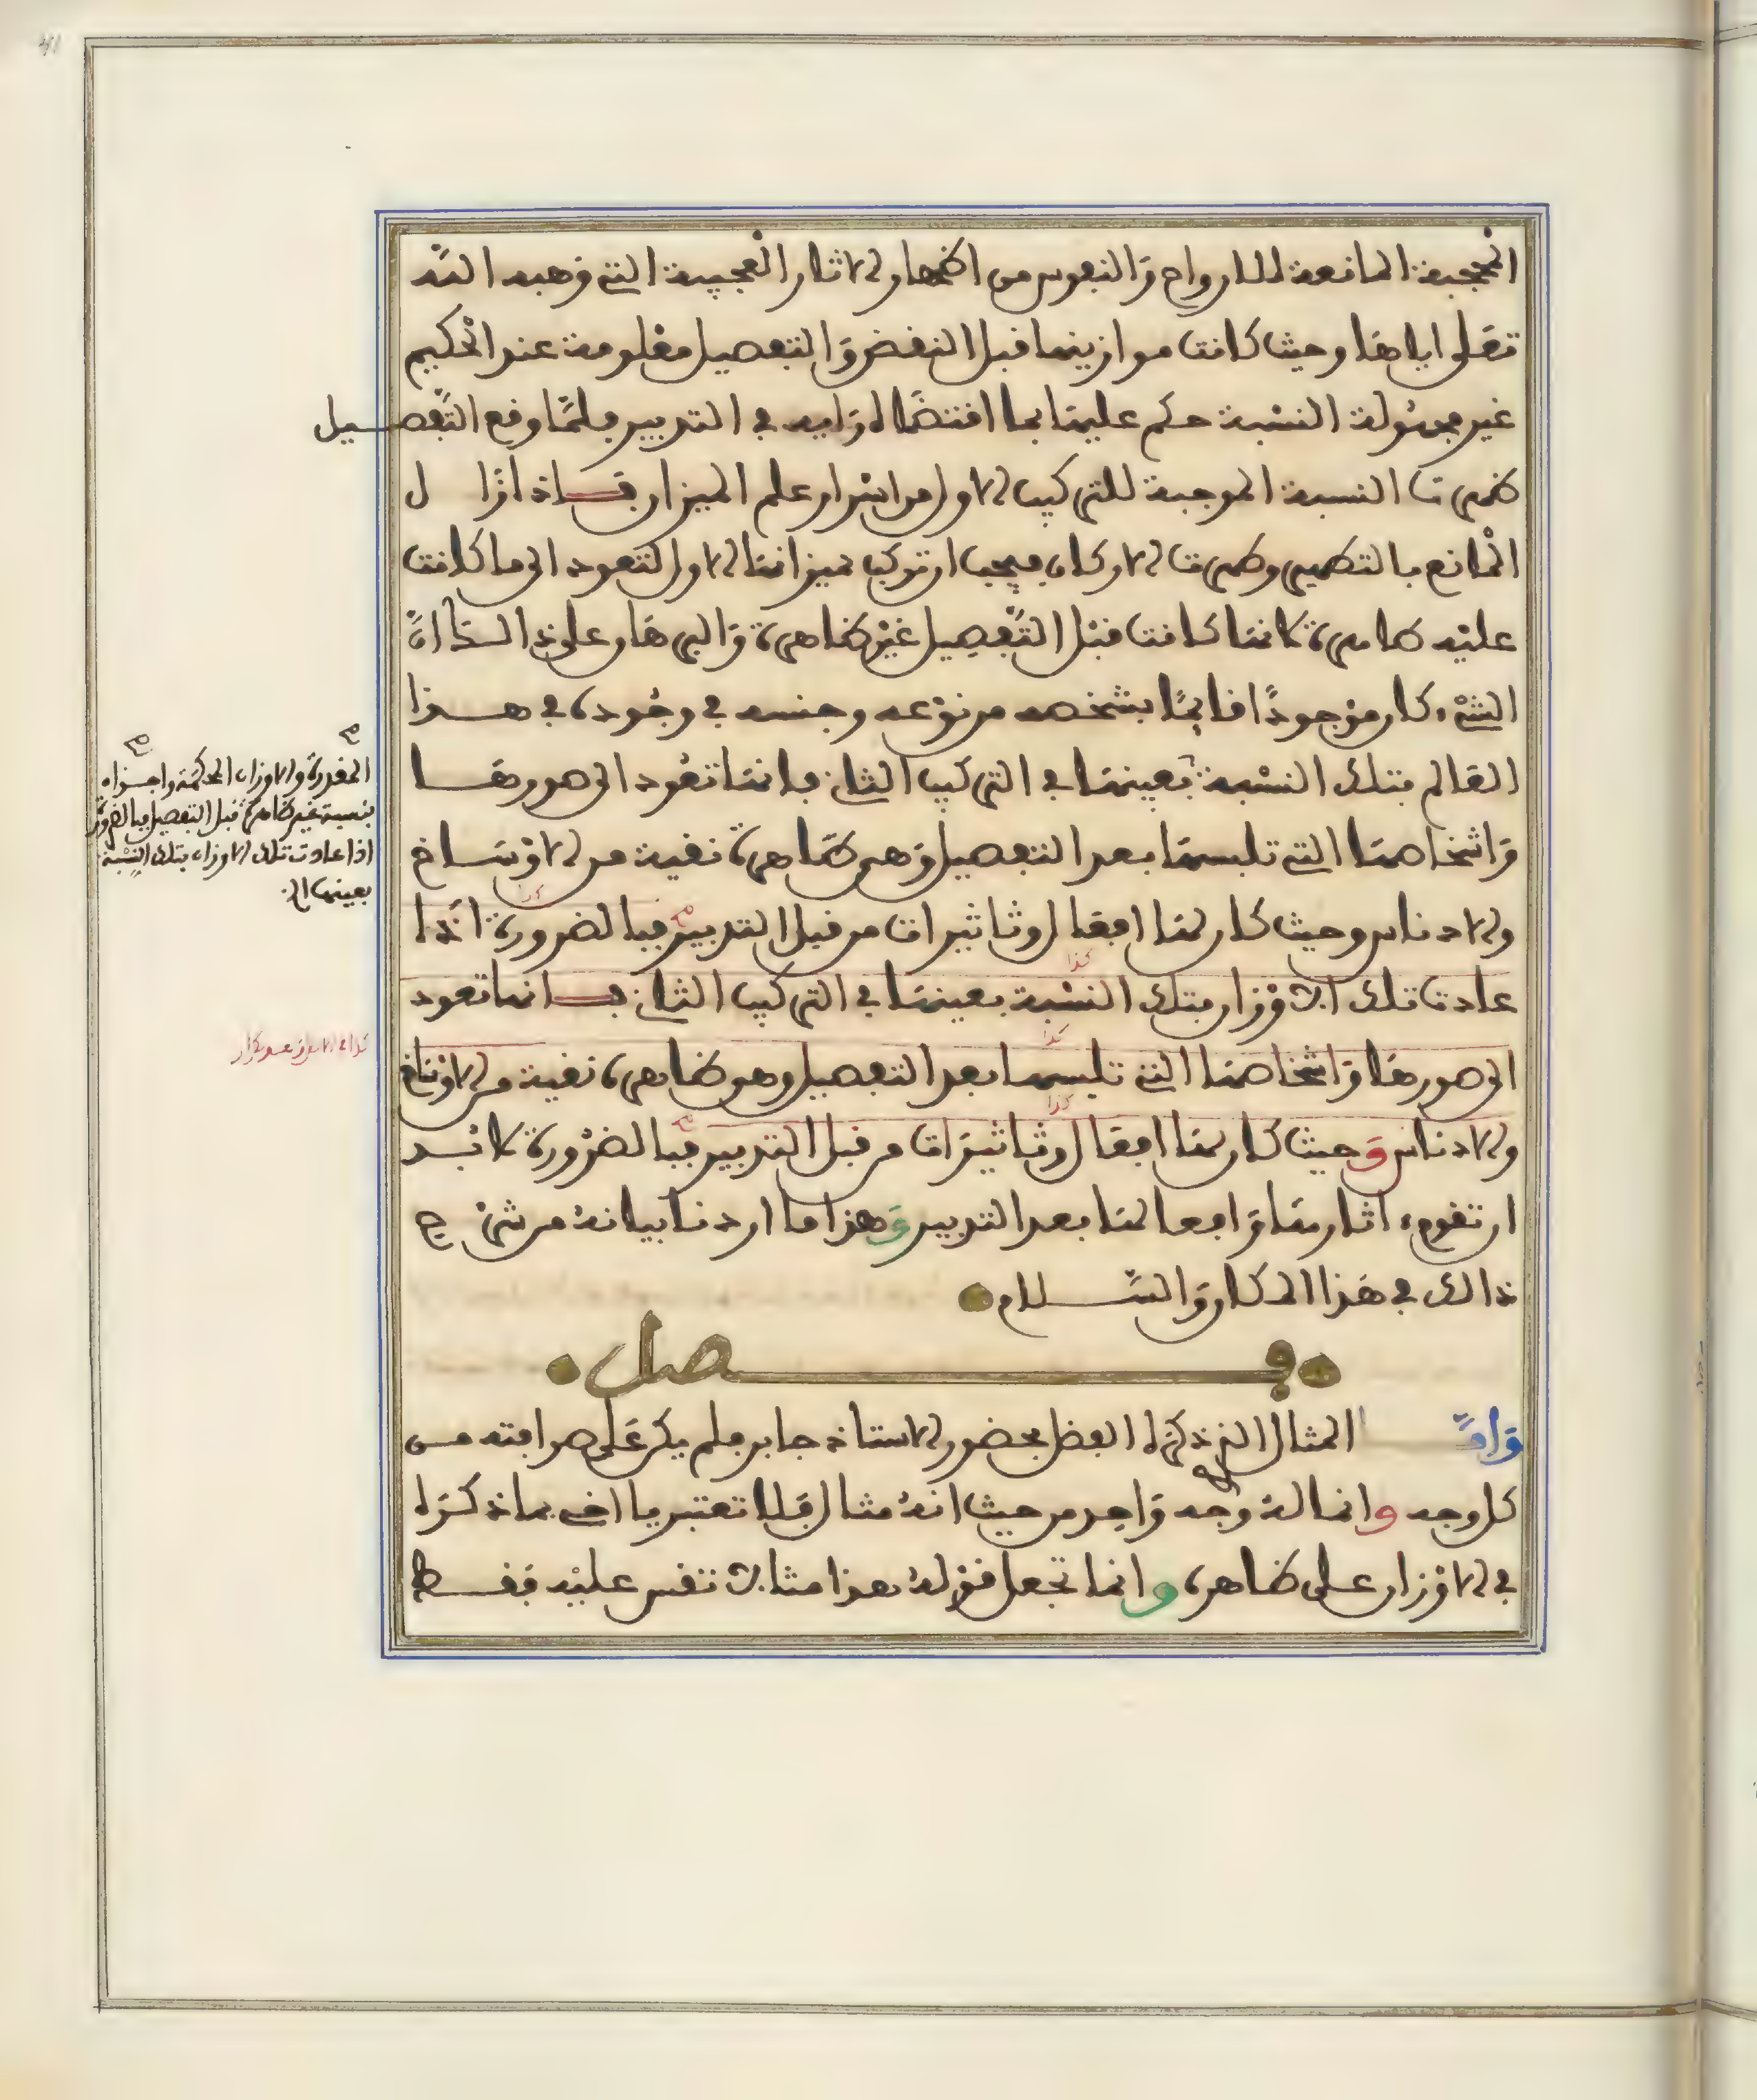 الحجبة المانعة للارواح والنفوس من اظهار الاثار العجيبة التي وهبه الله
تعلى اياها وحيث كانت موازينها قبل النقض والتفصيل معلومة عند الحكيم
غير مجهولة النسبة حكم عليها بما اقتضاله رايه في التدبير فلما وقع التفصيل
ظهرت النسبة الموجبة للتركيب الاول من اسرار علم الميزان فاذا زال
المانع بالتطهير وظهرت الاركان فيجب ان تركب بميزانها الاول لتعود الى ما كانت
عليه ظاهرة لانها كانت قبل التفصيل غير ظاهرة والبرهان على ذالك ان
الشيء كان موجودا قائما بشخصه من نوعه وجنسه في وجوده في هذا
العالم بتلك النسبة بعينها في التركيب الثاني فانها تعود الى صورها
واشخاصها التي تلبسها بعد التفصيل وهي ظاهرة نقية من الاوساخ
والادناس وحيث كان لها افعال وتاثيرات من قبل التدبير فبالضرورة اذا
عادت تلك الاوزان بتلك النسبة بعينها في التركيب الثاني فانها تعود
الى صورها واشخاصها التي تلبسها بعد التفصيل وهو ظاهرة نقية من الاوساخ
والادناس وحيث كان لها افعال وتاثيرات من قبل التدبير فبالضرورة لا بد
ان تقوى اثارها وافعالها بعد التدبير وهذا ما اردنا بيانه من شرح
ذالك في هذا المكان والسلام
فصل
واما المثال الذي ذكره الفضل بحضور الاستاذ جابر فلم يكن على صرافته من
كل وجه وانما له وجه واحد من حيث انه مثال فلا تعتبر يا اخي بما ذكره
في الاوزان على ظاهره وانما تجعل قوله هذا مثالا تقس عليه فقط
صح صح
المقدرة والاوزان المحكمة واجزاه
بنسبة غير ظاهرة قبل التفصيل فبالضرورة
اذا عادت تلك الاوزان بتلك النسبة
بعينها الخ
كذا
كذا
كذا
كذا
كذا في الاصل